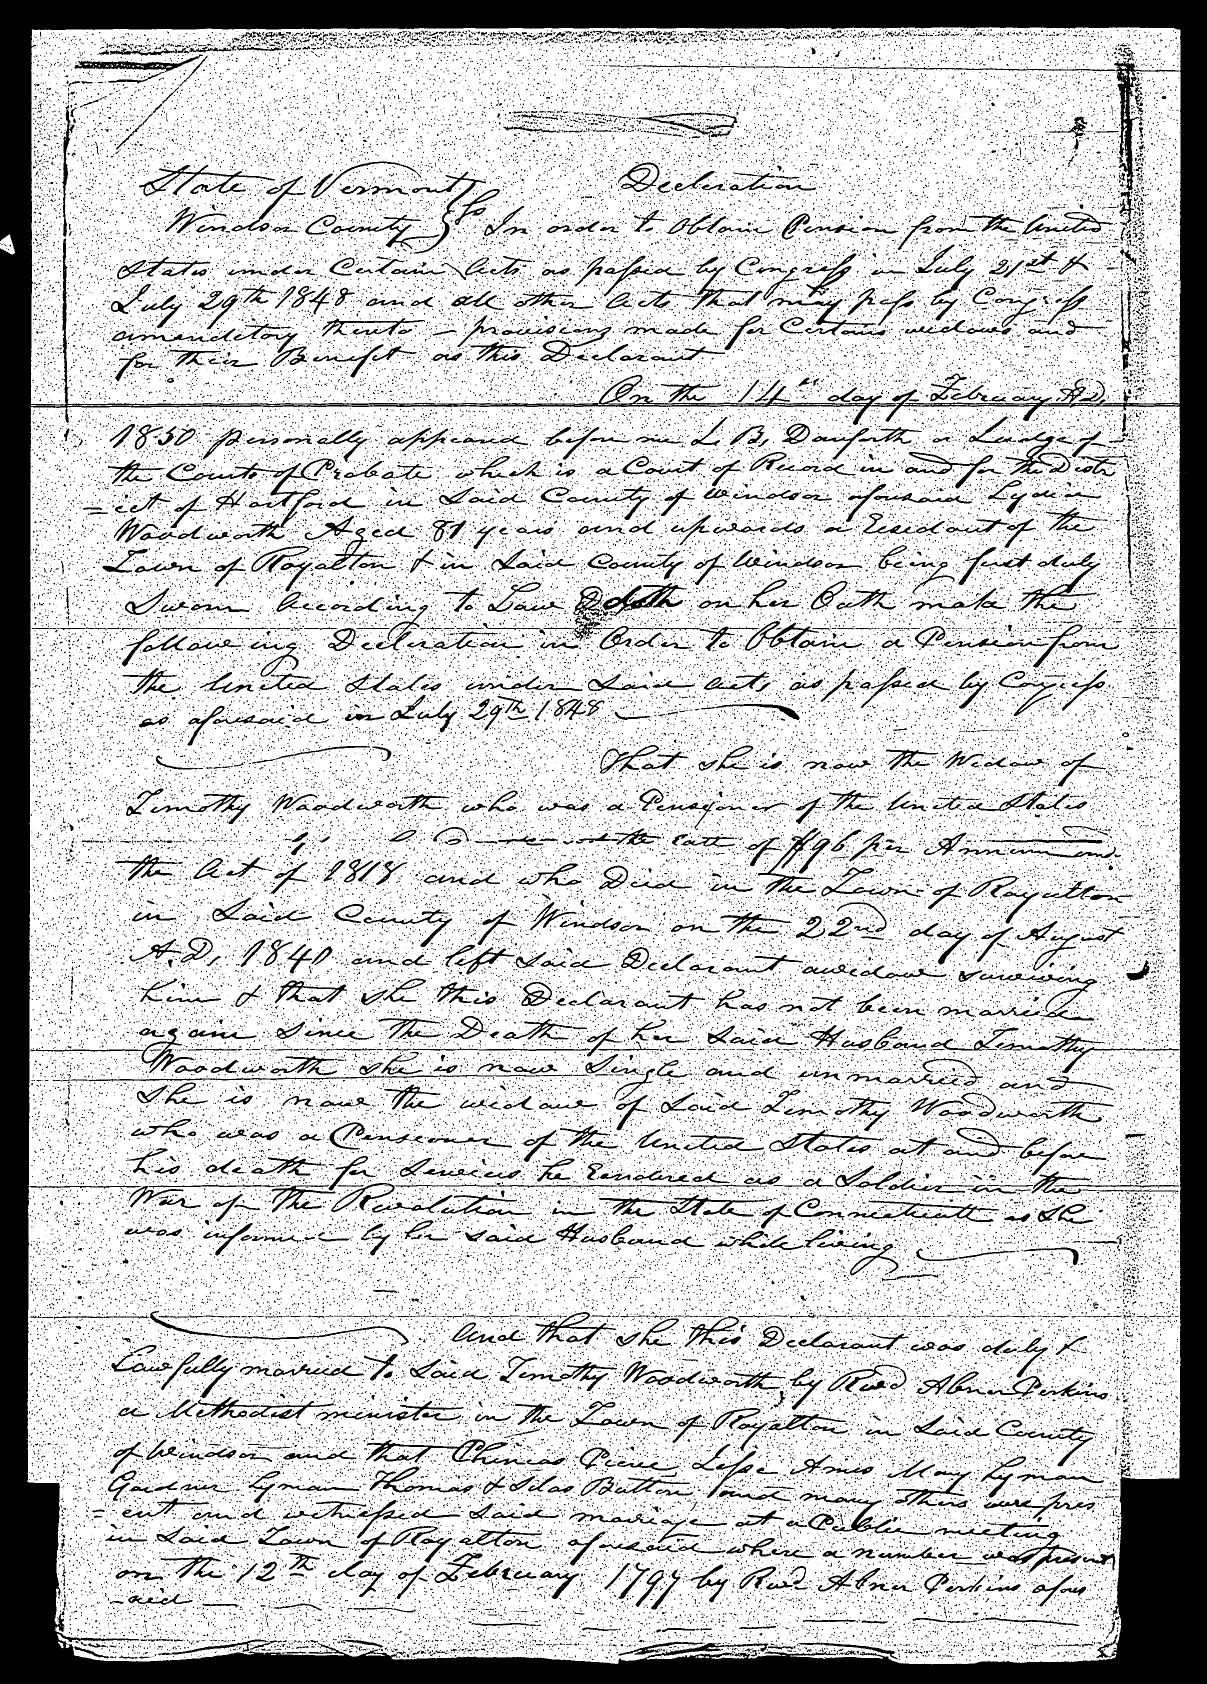 State of Vermont } ss Declaration
Windsor County } In order to Obtain Pension from the United
States under Certain Acts as passed by Congress in July 21st &
July 29th 1848 and all other Acts that may pass by Congress
amenditory thereto – provisions made for Certain widows and
for their Benefit as this Declarant
On the 14th day of February AD,
1850 personally appeared before me L. B. Danforth a Judge of
the Courts of Probate which is a Court of Record in and for the Distr
=ict of Hartford in Said County of Windsor aforesaid Lydia
Woodworth Aged 81 years and upwards a Residant of the
Town of Royalton & in Said County of Windsor being first duly
Sworn According to Law doth on her Oath make the
following Declaration in Order to Obtain a Pension from
the United States under Said Acts as passed by Congress
as aforesaid in July 29th 1848
That she is now the Widow of
Timothy Woodworth who was a Pensioner of the United States
at the rate of $96 per Annum and
the Act of 1818 and who Died in the Town of Royalton
in Said County of Windsor on the 22nd day of August
A.D, 1840 and left Said Declarant a widow surviving
him & that she this Declarant has not been married
again Since the Death of her Said Husband Timothy
Woodworth she is now Single and unmarried and
She is now the widow of Said Timothy Woodworth
who was a Penseoner of the United States at and before
his death for Services he Rendered as a Soldier in the
War of the Revolution in the State of Connecticutt as She
was informed by her said Husband while living
And that she this Declarant was duly &
Lawfully married to Said Timothy Woodworth, by Revd Abner Perkins
a Methodist minister in the Town of Royalton in Said County
of Windsor and that Phineas Pierce Jesse Ames May Lyman
Gardner Lyman Thomas & Silas Button and many others were pres
=ent and witnessed Said marriage at a Public meeting
in Said Town of Royalton aforesaid where a number was present
on the 12th day of February 1797 by Revd Abner Perkins afores
-aid